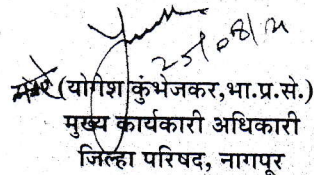 25/08/21
(योगेश कुंभेजकर,भा.प्र.से.)
मुख्य कार्यकारी अधिकारी
जिल्हा परिषद, नागपूर